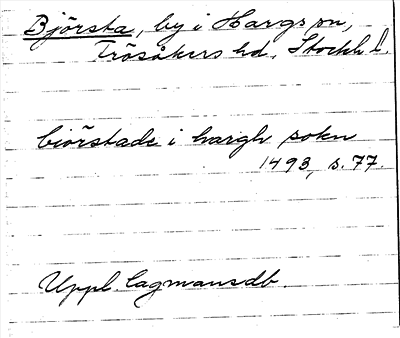 Björsta, by i Hargs sn,
Frösåkers hd. Stockh l.
biörstade i hargh sokn
1493, s. 77.
Uppl. lagmansdb.